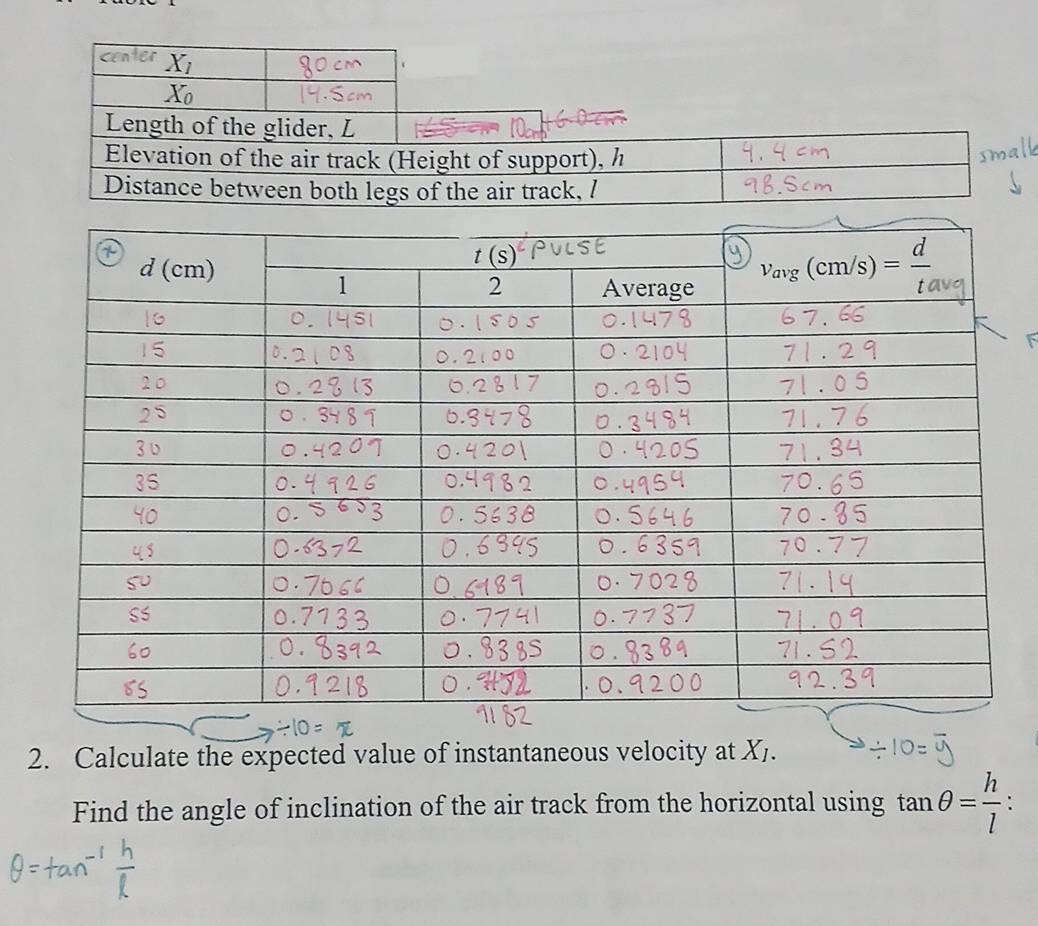 center X₁ 80 cm
X₀ 14.5 cm
Length of the glider, L 10cm
Elevation of the air track (Height of support), h 4.4 cm
Distance between both legs of the air track, l 98.5cm
d (cm) t (s) PULSE y v_avg (cm/s) = d / t avg
1 2 Average
10 0.1451 0.1505 0.1478 67.66
15 0.2108 0.2100 0.2104 71.29
20 0.2813 0.2817 0.2815 71.05
25 0.3489 0.3478 0.3484 71.76
30 0.4209 0.4201 0.4205 71.34
35 0.4926 0.4982 0.4954 70.65
40 0.5653 0.5638 0.5646 70.85
45 0.6372 0.6345 0.6359 70.77
50 0.7066 0.6989 0.7028 71.14
55 0.7733 0.7741 0.7737 71.09
60 0.8392 0.8385 0.8389 71.52
85 0.9218 0.9200 92.39
9182
÷10 = x̄ ÷10 = ȳ
2. Calculate the expected value of instantaneous velocity at X₁.
Find the angle of inclination of the air track from the horizontal using tan θ = h / l :
θ = tan⁻¹ h / l